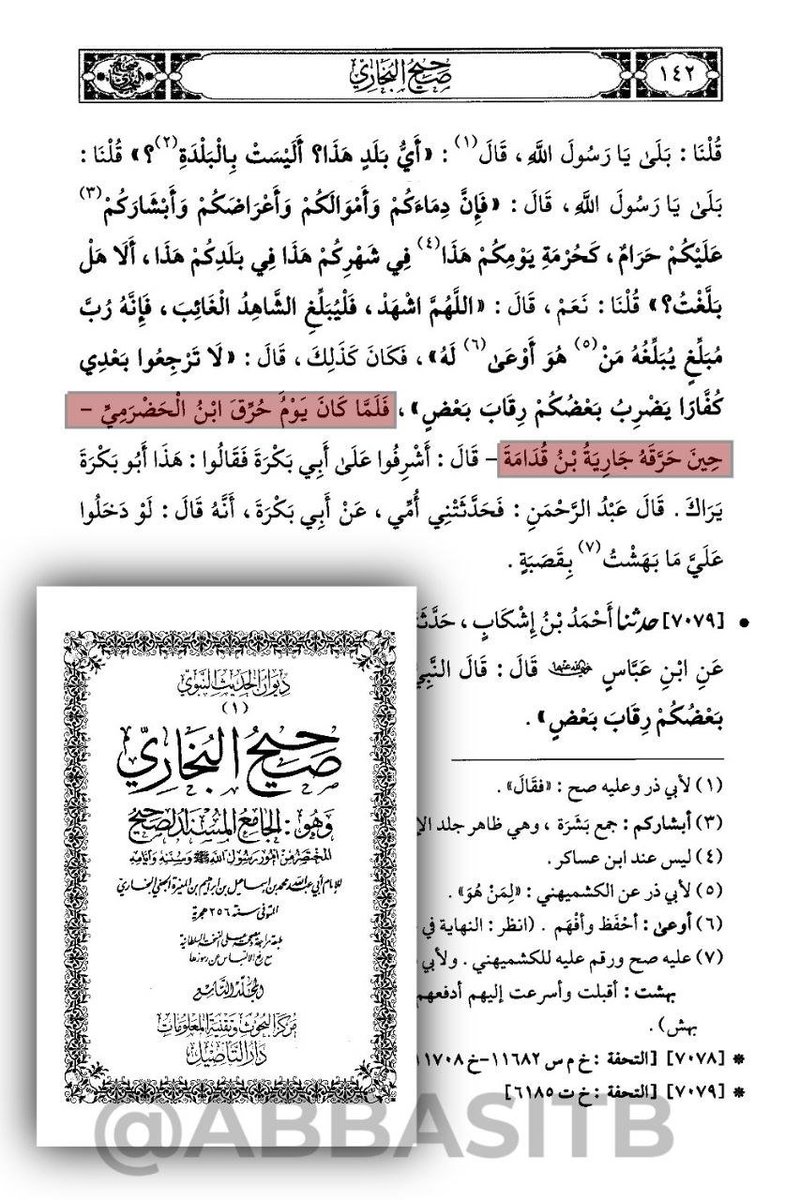 ١٤٢
صحيح البخاري
قُلْنَا : بَلَىٰ يَا رَسُولَ اللَّهِ ، قَالَ(١) : «أَيُّ بَلَدٍ هَذَا؟ أَلَيْسَتْ بِالْبَلْدَةِ(٢)؟» قُلْنَا :
بَلَىٰ يَا رَسُولَ اللَّهِ ، قَالَ : «فَإِنَّ دِمَاءَكُمْ وَأَمْوَالَكُمْ وَأَعْرَاضَكُمْ وَأَبْشَارَكُمْ(٣)
عَلَيْكُمْ حَرَامٌ ، كَحُرْمَةِ يَوْمِكُمْ هَذَا(٤) فِي شَهْرِكُمْ هَذَا فِي بَلَدِكُمْ هَذَا ، أَلَا هَلْ
بَلَّغْتُ؟» قُلْنَا : نَعَمْ ، قَالَ : «اللَّهُمَّ اشْهَدْ ، فَلْيُبَلِّغِ الشَّاهِدُ الْغَائِبَ ، فَإِنَّهُ رُبَّ
مُبَلِّغٍ يُبَلِّغُهُ مَنْ(٥) هُوَ أَوْعَىٰ(٦) لَهُ» ، فَكَانَ كَذَلِكَ ، قَالَ : «لَا تَرْجِعُوا بَعْدِي
كُفَّارًا يَضْرِبُ بَعْضُكُمْ رِقَابَ بَعْضٍ» ، فَلَمَّا كَانَ يَوْمُ حُرِّقَ ابْنُ الْحَضْرَمِيِّ -
حِينَ حَرَّقَهُ جَارِيَةُ بْنُ قُدَامَةَ - قَالَ : أَشْرِفُوا عَلَىٰ أَبِي بَكْرَةَ فَقَالُوا : هَذَا أَبُو بَكْرَةَ
يَرَاكَ . قَالَ عَبْدُ الرَّحْمَنِ : فَحَدَّثَتْنِي أُمِّي ، عَنْ أَبِي بَكْرَةَ ، أَنَّهُ قَالَ : لَوْ دَخَلُوا
عَلَيَّ مَا بَهَشْتُ(٧) بِقَصَبَةٍ .
• [٧٠٧٩] حدثنا أَحْمَدُ بْنُ إِشْكَابٍ ، حَدَّثَ
عَنِ ابْنِ عَبَّاسٍ رضي الله عنهما قَالَ : قَالَ النَّبِيُّ
بَعْضُكُمْ رِقَابَ بَعْضٍ» .
(١) لأبي ذر وعليه صح : «فقَالَ» .
(٣) أبشاركم : جمع بَشَرَة ، وهي ظاهر جلد الإ
(٤) ليس عند ابن عساكر .
(٥) لأبي ذر عن الكشميهني : «لِمَنْ هُوَ» .
(٦) أوعىٰ : أحْفَظ وأفْهَم . (انظر : النهاية في
(٧) عليه صح ورقم عليه للكشميهني . ولأبي
بهشت : أقبلت وأسرعت إليهم أدفعهم
بهش) .
* [٧٠٧٨] [التحفة : خ م س ١١٦٨٢-خ ١١٧٠٨
* [٧٠٧٩] [التحفة : خ ت ٦١٨٥]
ديوان الحديث النبوي
(١)
صحيح البخاري
وهو : الجامع المسند الصحيح
المختصر من أمور رسول الله ﷺ وسننه وأيامه
للإمام أبي عبد الله محمد بن إسماعيل بن إبراهيم بن المغيرة الجعفي البخاري
المتوفى سنة ٢٥٦ هجرية
المجلد التاسع
مركز البحوث وتقنية المعلومات
دار التأصيل
@ABBASITB